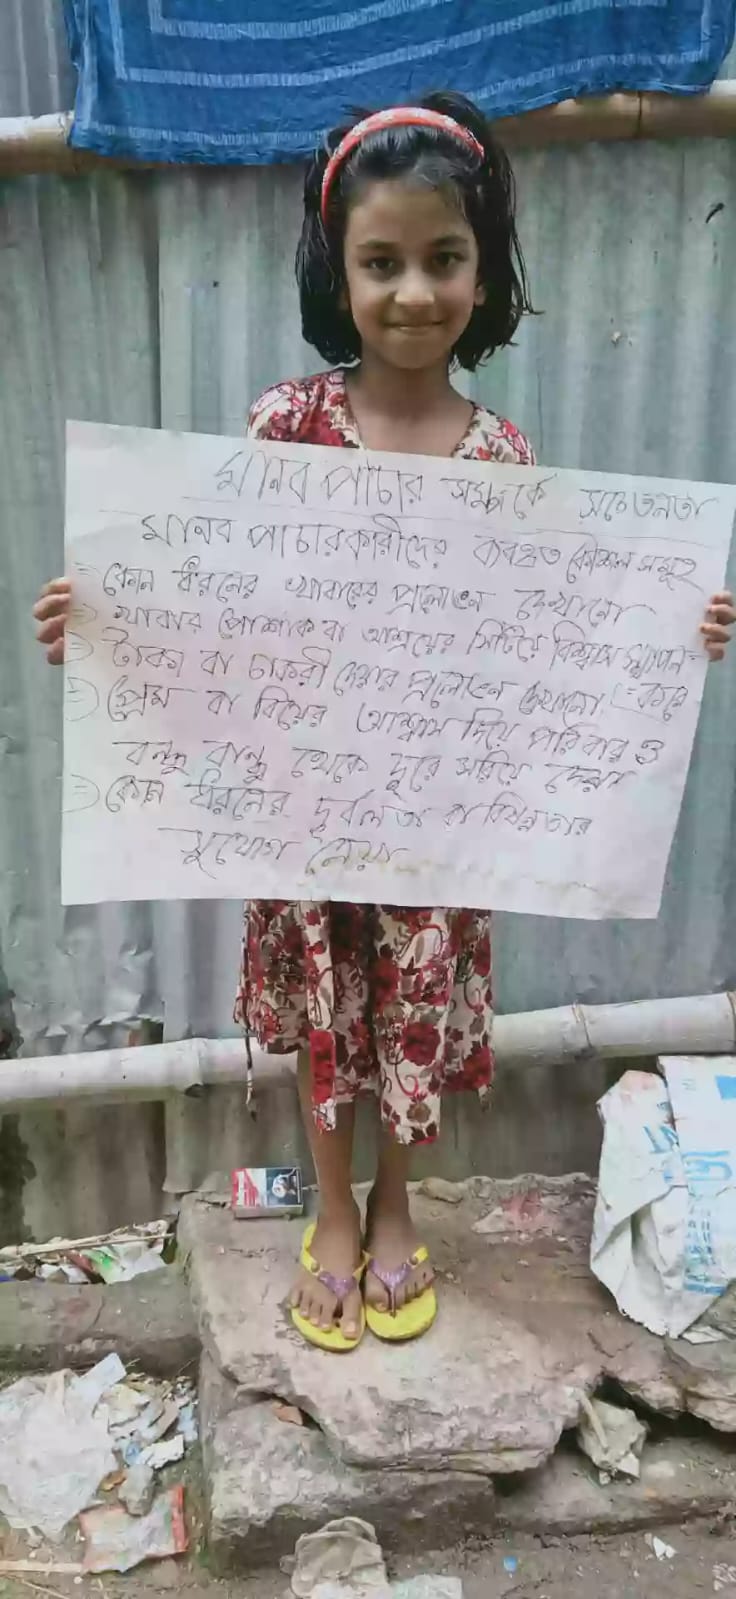 মানব পাচার সম্পর্কে সচেতনতা
মানব পাচারকারীদের ব্যবহৃত কৌশল সমূহ
কোন ধরনের খাবারের প্রলোভন দেখানো
খাবার পোশাক বা আশ্রয়ের মিটিয়ে বিশ্বাস স্থাপন
করে
টাকা বা চাকরী দেয়ার প্রলোভন দেখানো।
প্রেম বা বিয়ের আশ্বাস দিয়ে পরিবার ও
বন্ধু বান্ধু থেকে দূরে সরিয়ে দেয়া
কোন ধরনের দুর্বলতা বা বিষন্নতার
সুযোগ নেয়া